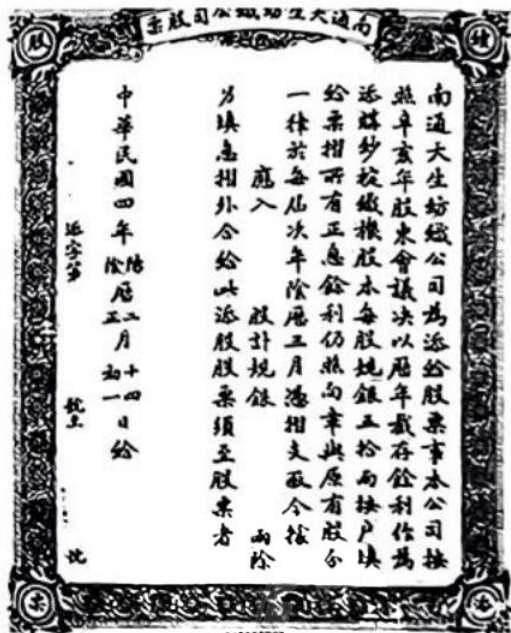 南通大生紡織公司股票
股
票
南通大生紡織公司為添給股票事本公司按
照辛亥年股東會議決以歷年截存餘利作為
添購紗錠織機股本每股規銀五拾兩按戶填
給票摺所有正息餘利仍照向章與原有股分
一律於每屆次年陰歷三月憑摺支取今據
應入 股計規銀 兩除
另填息摺外合給此添股股票須至股票者
中華民國四年陽陰歷二正月十四初一日給
添字第 號